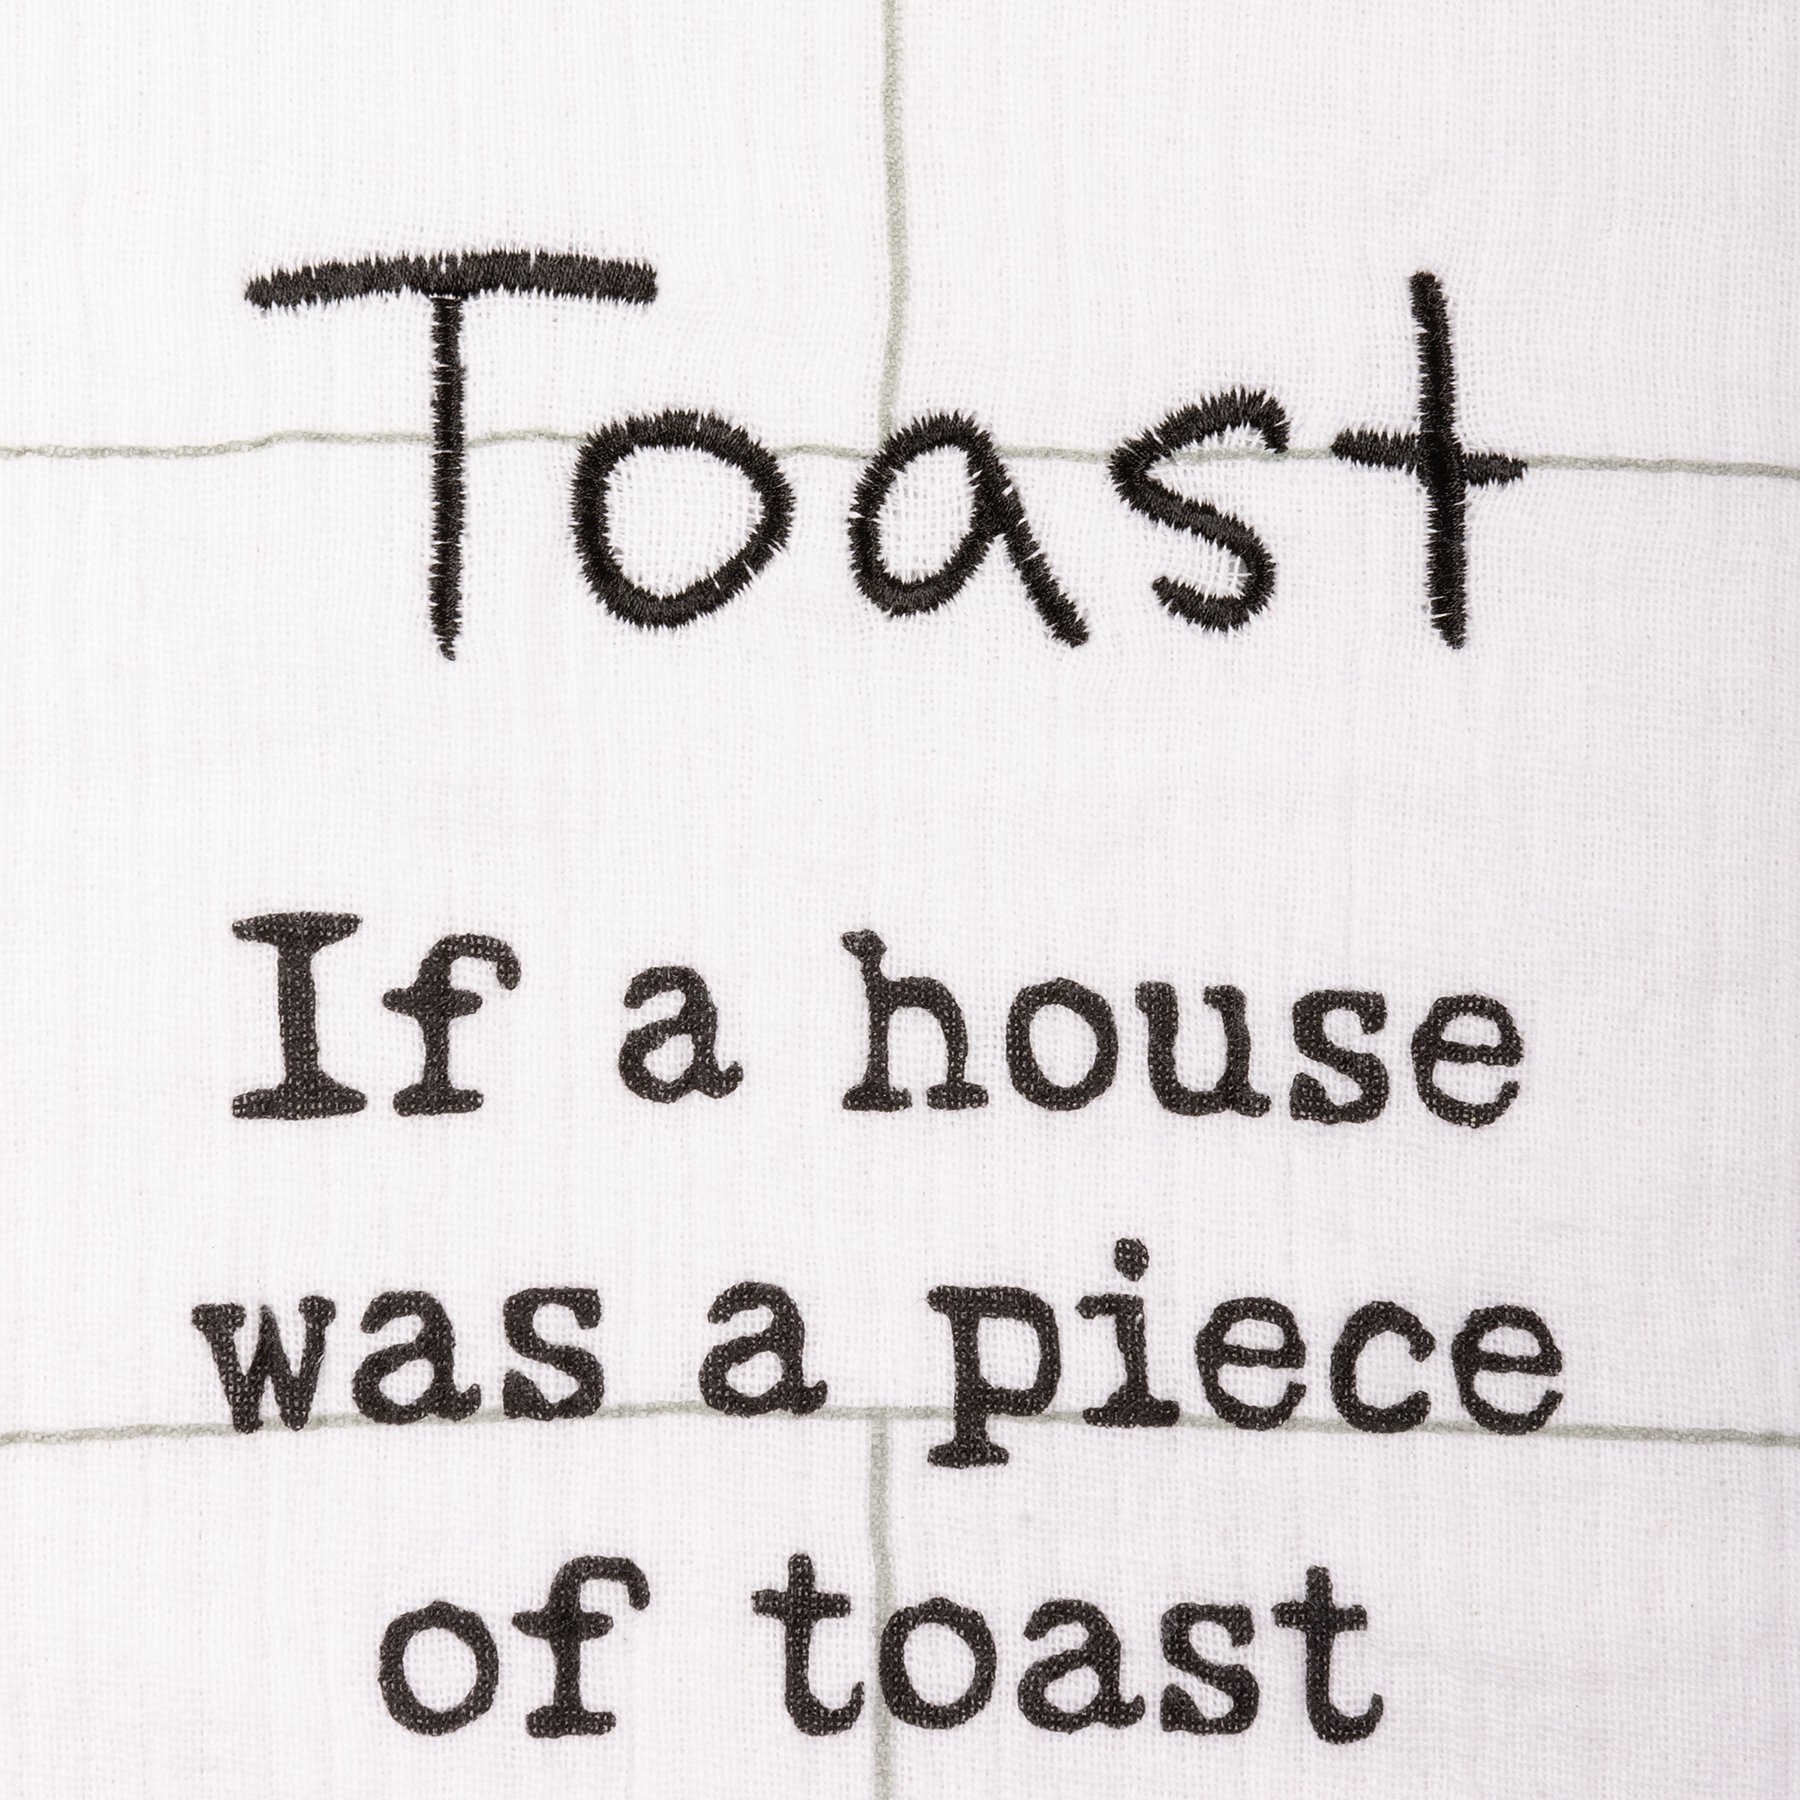 Toast
If a house
was a piece
of toast